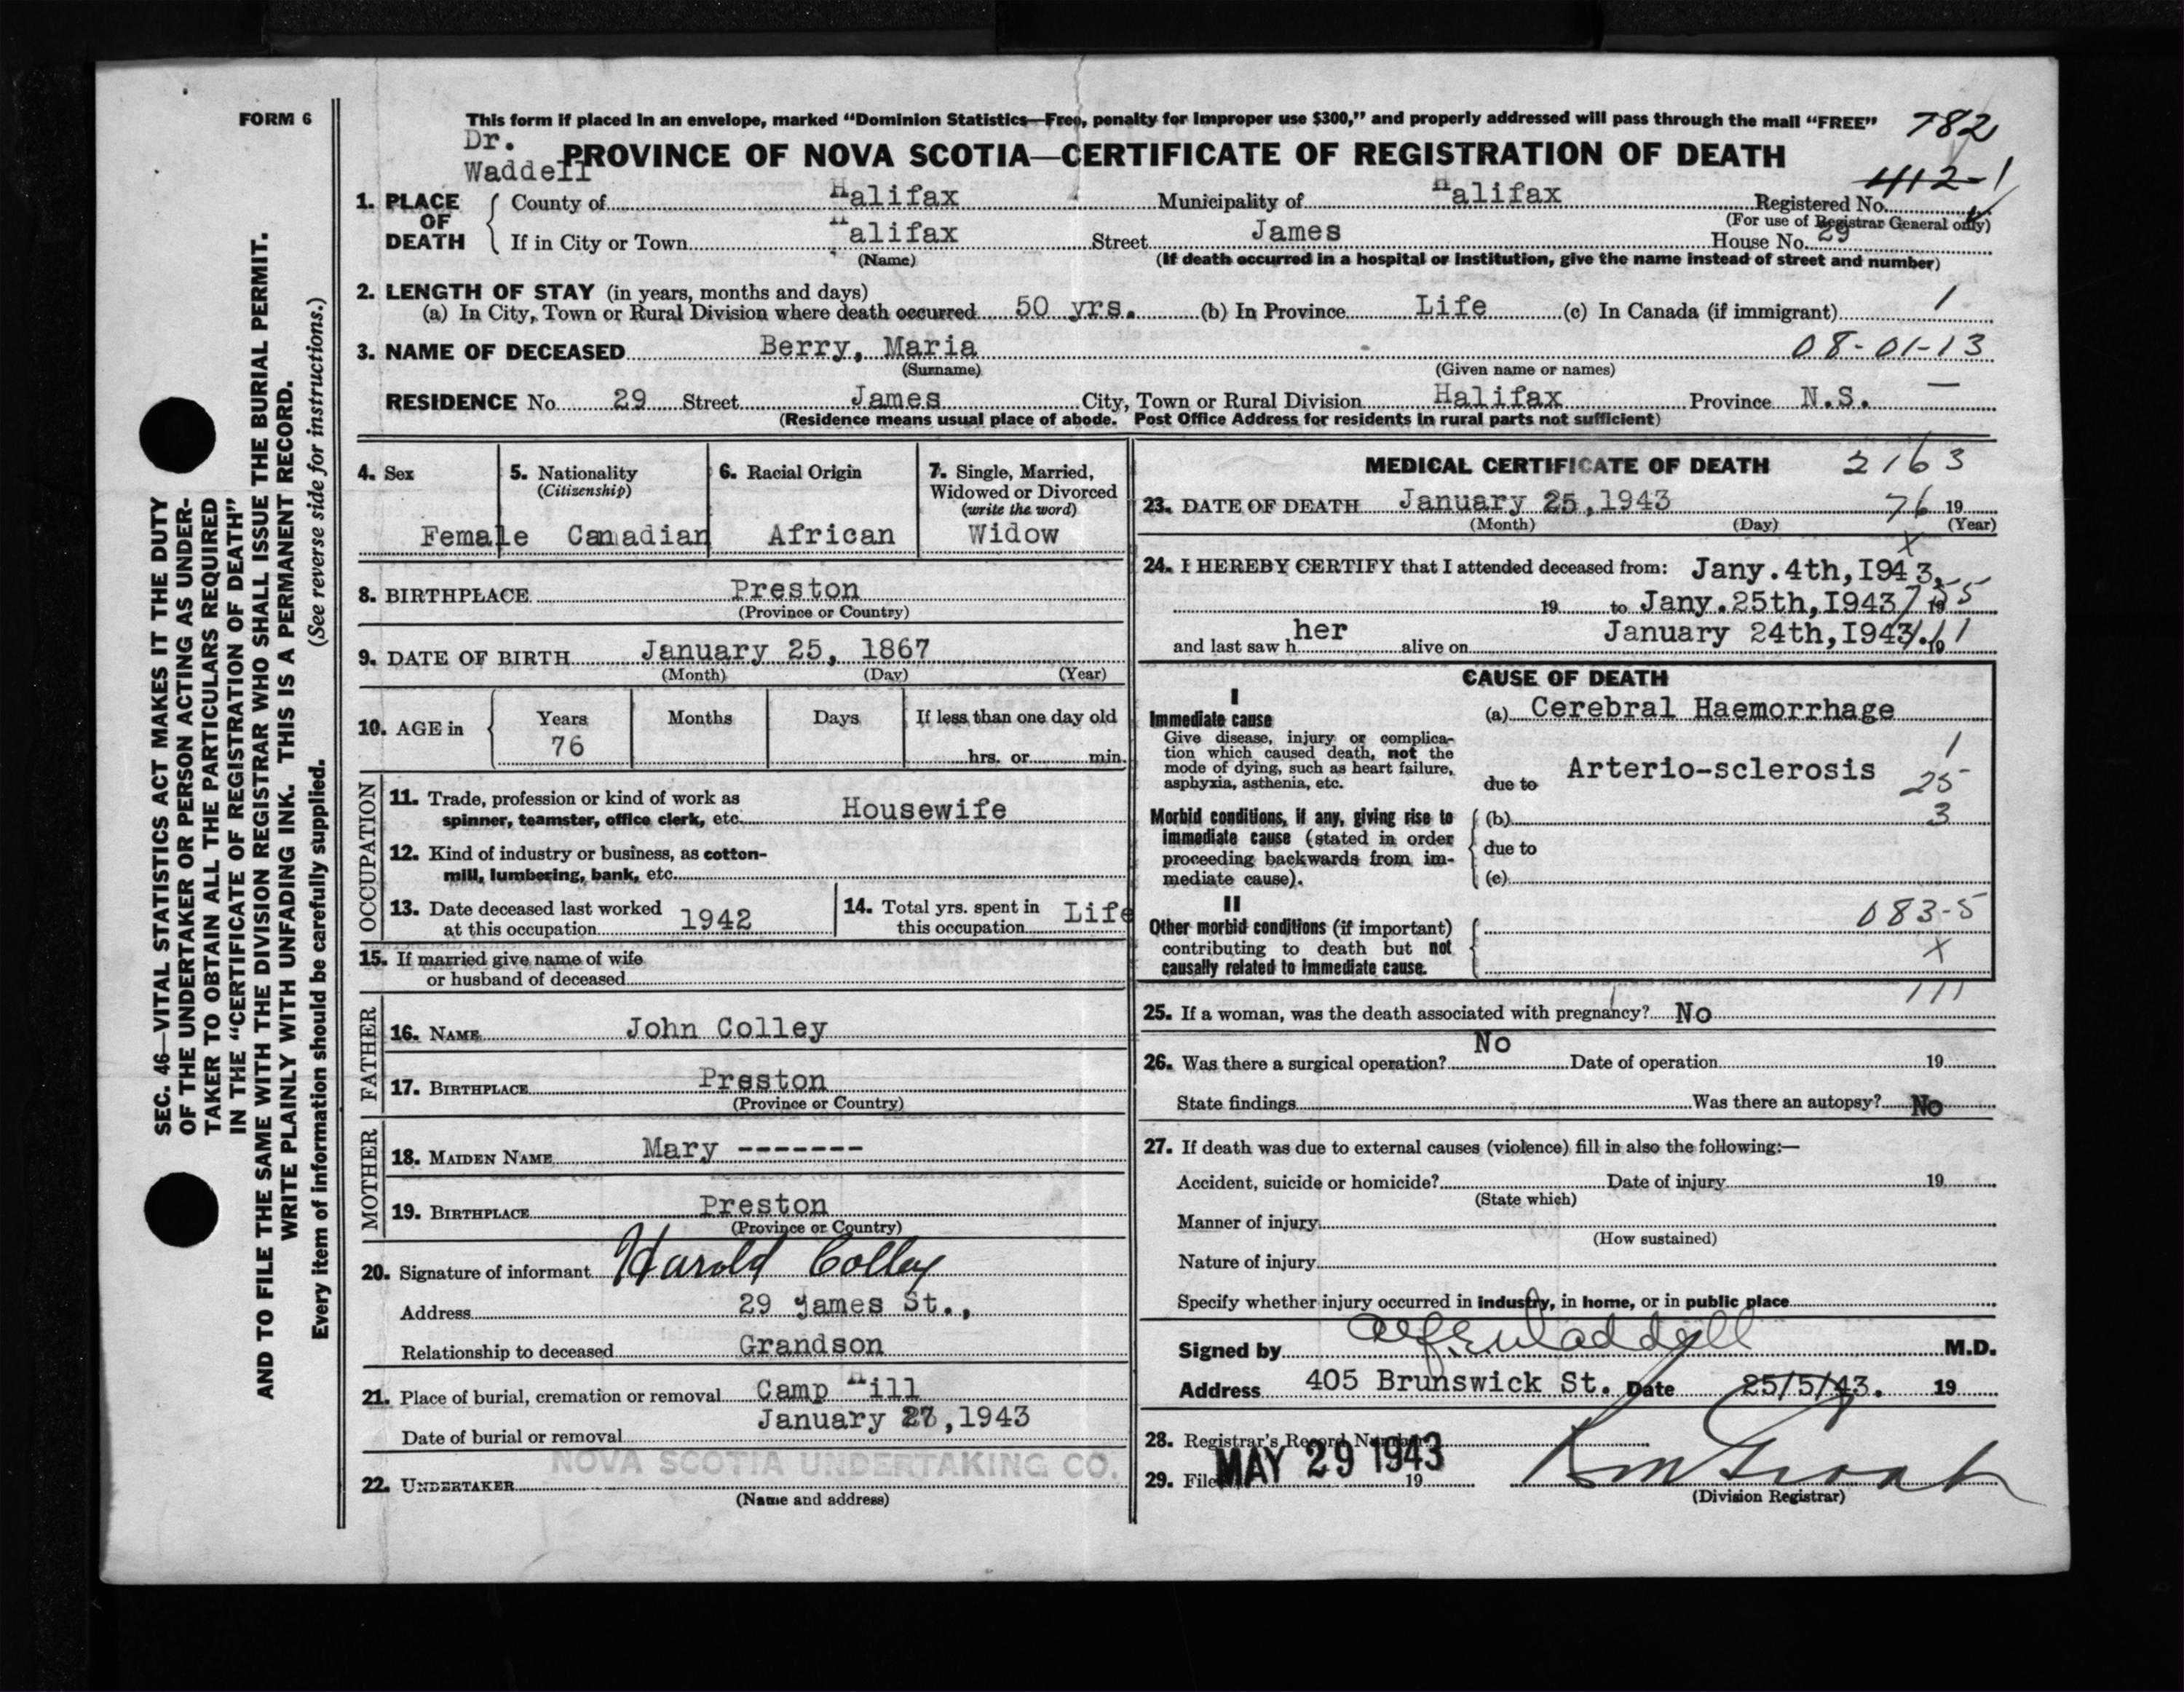 FORM 6
This form if placed in an envelope, marked “Dominion Statistics—Free, penalty for improper use $300,” and properly addressed will pass through the mail “FREE” 782
Dr.
Waddell
PROVINCE OF NOVA SCOTIA—CERTIFICATE OF REGISTRATION OF DEATH
412-1
1. PLACE OF DEATH
County of Halifax Municipality of Halifax Registered No.
(For use of Registrar General only)
If in City or Town Halifax Street James House No. 29
(Name) (If death occurred in a hospital or institution, give the name instead of street and number)
2. LENGTH OF STAY (in years, months and days)
(a) In City, Town or Rural Division where death occurred 50 yrs. (b) In Province Life (c) In Canada (if immigrant) 1
3. NAME OF DECEASED Berry, Maria 08-01-13
(Surname) (Given name or names)
RESIDENCE No. 29 Street James City, Town or Rural Division Halifax Province N.S. —
(Residence means usual place of abode. Post Office Address for residents in rural parts not sufficient)
4. Sex
Female
5. Nationality
(Citizenship)
Canadian
6. Racial Origin
African
7. Single, Married,
Widowed or Divorced
(write the word)
Widow
8. BIRTHPLACE Preston
(Province or Country)
9. DATE OF BIRTH January 25, 1867
(Month) (Day) (Year)
10. AGE in
Years Months Days If less than one day old
76 hrs. or min.
OCCUPATION
11. Trade, profession or kind of work as
spinner, teamster, office clerk, etc. Housewife
12. Kind of industry or business, as cotton-
mill, lumbering, bank, etc.
13. Date deceased last worked
at this occupation 1942
14. Total yrs. spent in
this occupation Life
15. If married give name of wife
or husband of deceased
FATHER
16. NAME John Colley
17. BIRTHPLACE Preston
(Province or Country)
MOTHER
18. MAIDEN NAME Mary -------
19. BIRTHPLACE Preston
(Province or Country)
20. Signature of informant Harold Colley
Address 29 james St.,
Relationship to deceased Grandson
21. Place of burial, cremation or removal Camp Hill
January 27, 1943
Date of burial or removal
NOVA SCOTIA UNDERTAKING CO.
22. UNDERTAKER
(Name and address)
MEDICAL CERTIFICATE OF DEATH 2163
23. DATE OF DEATH January 25, 1943 76 19
(Month) (Day) (Year)
X
24. I HEREBY CERTIFY that I attended deceased from: Jany. 4th, I943,
19 to Jany. 25th, I943 19
and last saw her alive on January 24th, I943. 19
CAUSE OF DEATH
I
Immediate cause
Give disease, injury or complica-
tion which caused death, not the
mode of dying, such as heart failure,
asphyxia, asthenia, etc.
(a) Cerebral Haemorrhage
1
due to Arterio-sclerosis
25
Morbid conditions, if any, giving rise to
immediate cause (stated in order
proceeding backwards from im-
mediate cause).
(b) 3
due to
(c)
II
Other morbid conditions (if important)
contributing to death but not
causally related to immediate cause.
083-5
X
111
25. If a woman, was the death associated with pregnancy? No
26. Was there a surgical operation? No Date of operation 19
State findings Was there an autopsy? No
27. If death was due to external causes (violence) fill in also the following:—
Accident, suicide or homicide? Date of injury 19
(State which)
Manner of injury
(How sustained)
Nature of injury
Specify whether injury occurred in industry, in home, or in public place
Signed by Alf. E. Waddell M.D.
Address 405 Brunswick St. Date 25/5/43. 19
28. Registrar's Record Number
29. Filed MAY 29 1943 19
(Division Registrar)
SEC. 46—VITAL STATISTICS ACT MAKES IT THE DUTY
OF THE UNDERTAKER OR PERSON ACTING AS UNDER-
TAKER TO OBTAIN ALL THE PARTICULARS REQUIRED
IN THE “CERTIFICATE OF REGISTRATION OF DEATH”
AND TO FILE THE SAME WITH THE DIVISION REGISTRAR WHO SHALL ISSUE THE BURIAL PERMIT.
WRITE PLAINLY WITH UNFADING INK. THIS IS A PERMANENT RECORD.
Every item of information should be carefully supplied. (See reverse side for instructions.)